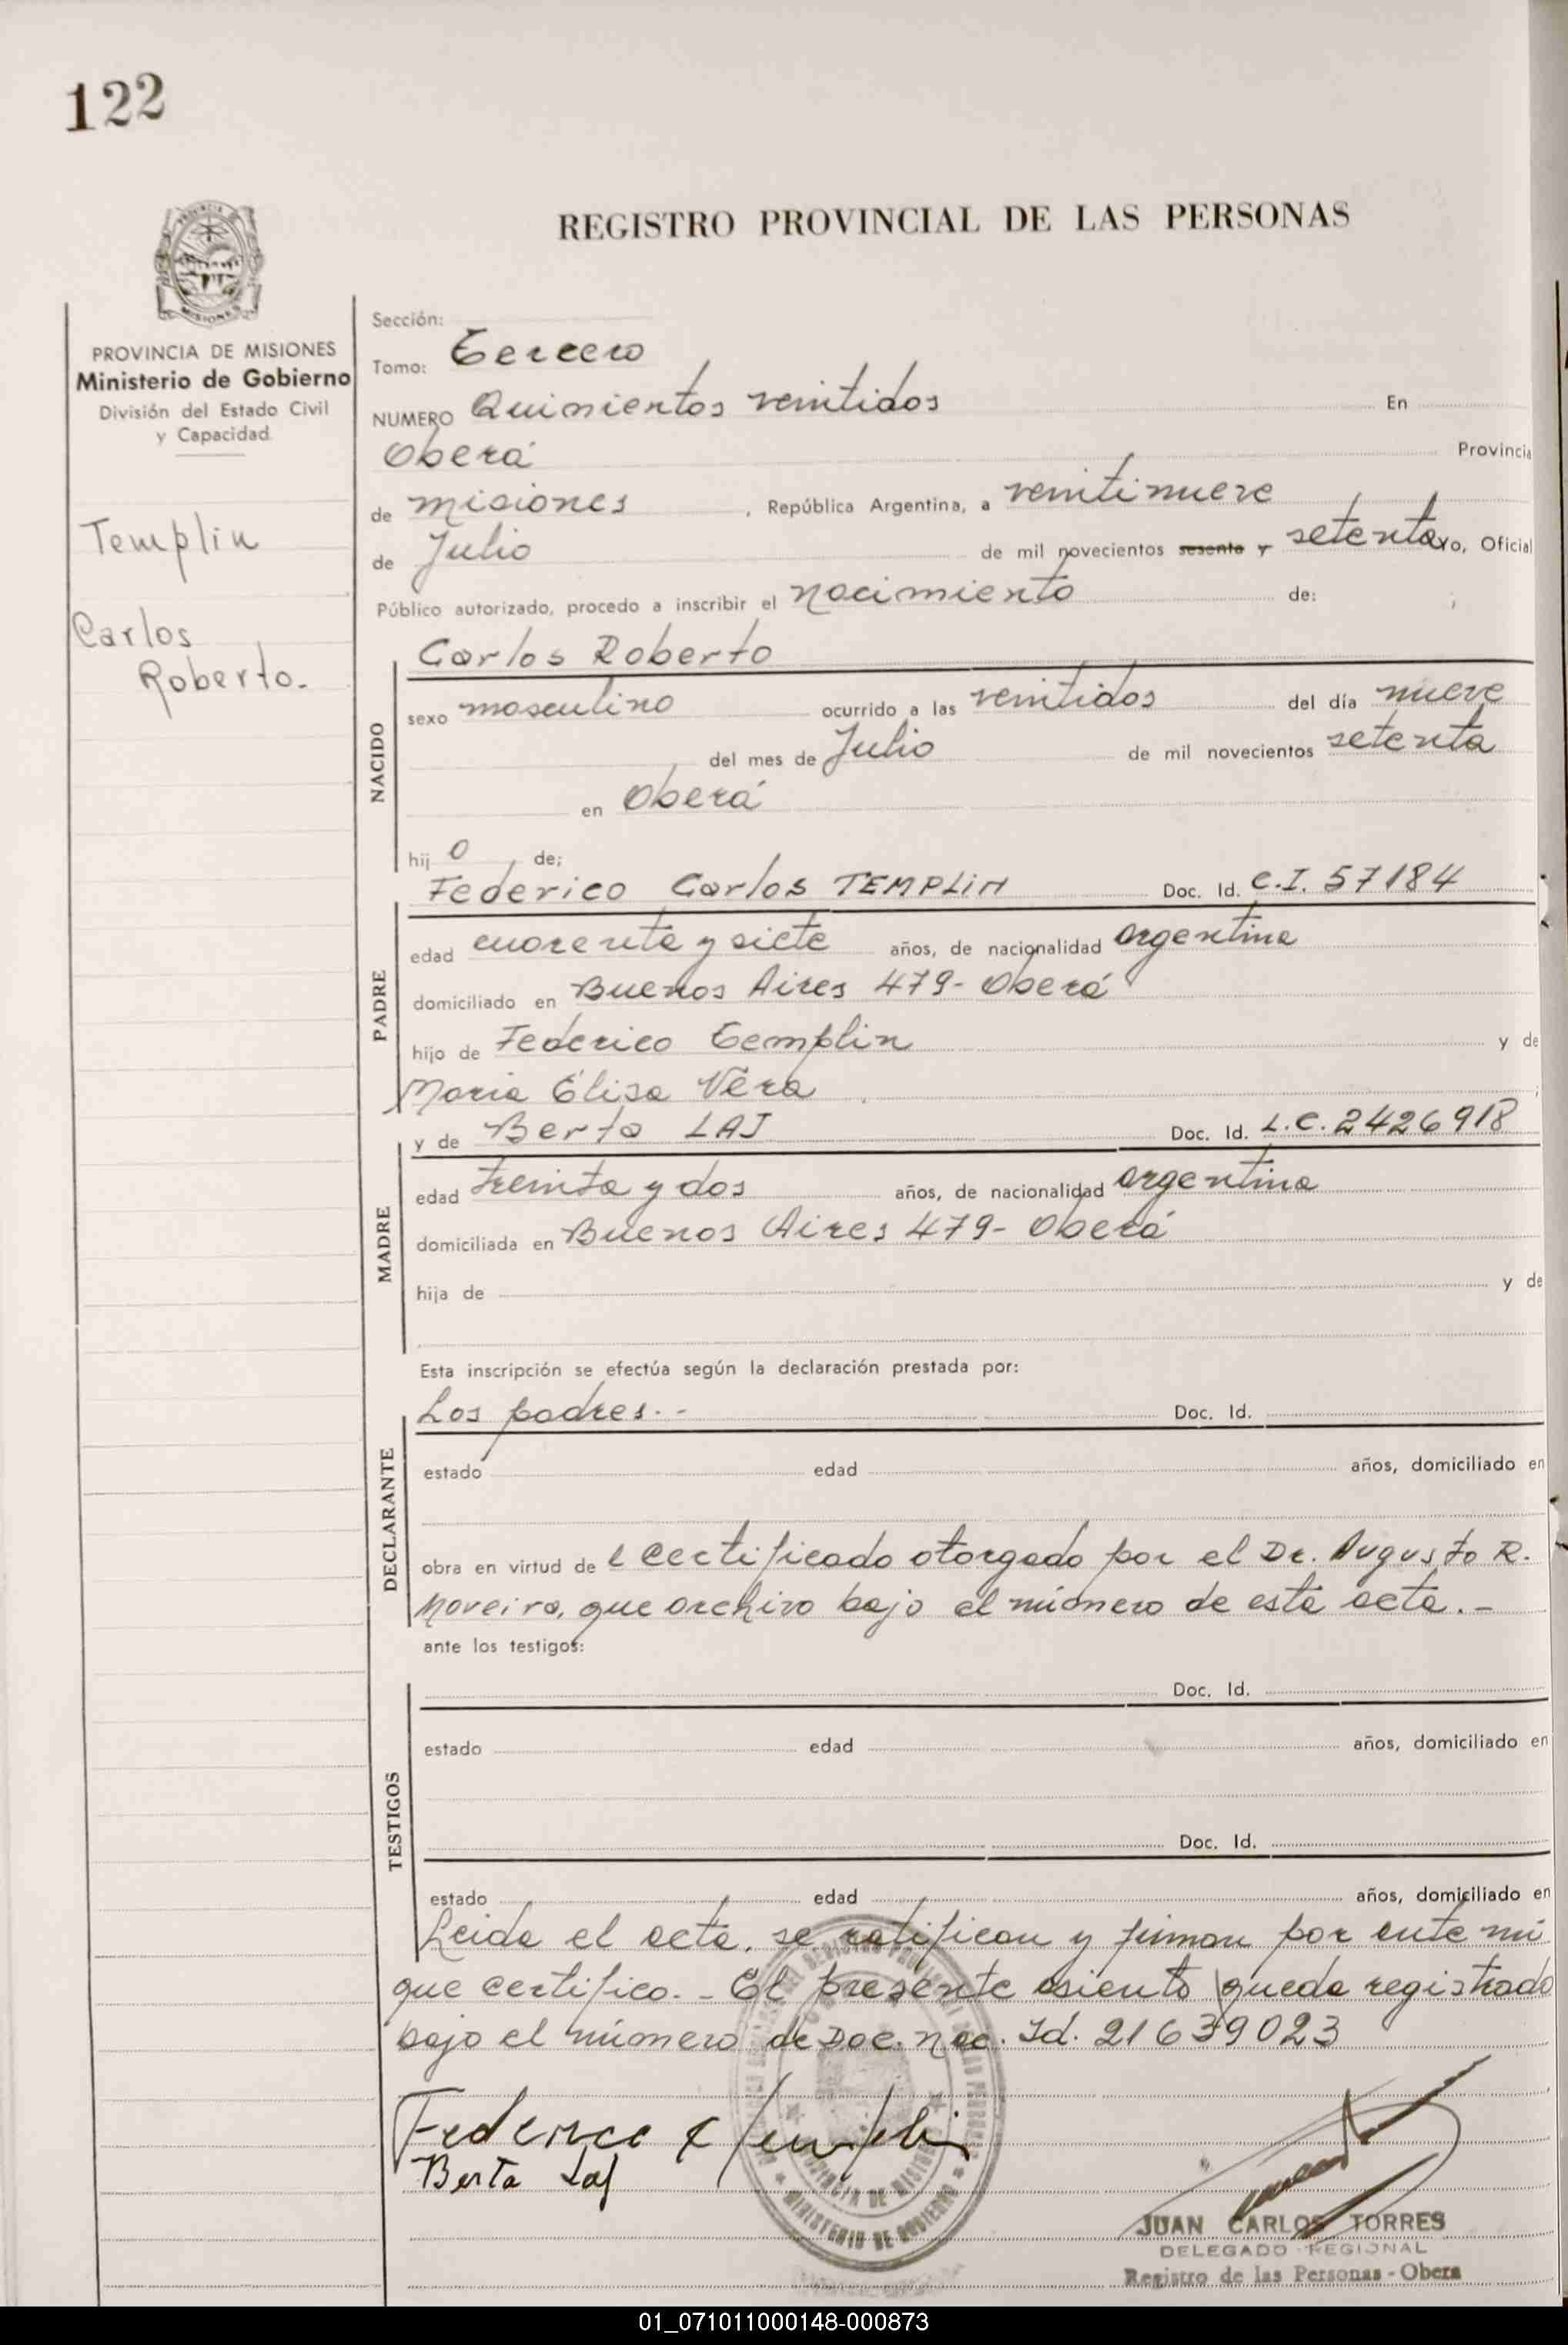 122
REGISTRO PROVINCIAL DE LAS PERSONAS
PROVINCIA DE MISIONES
Ministerio de Gobierno
División del Estado Civil
y Capacidad
Templin
Carlos
Roberto.
Sección:
Tomo: Tercero
NUMERO Quinientos veintidos En
Oberá Provincia
de Misiones , República Argentina, a veintinueve
de Julio de mil novecientos sesenta y setenta yo, Oficial
Público autorizado, procedo a inscribir el nacimiento de:
Carlos Roberto
NACIDO
sexo masculino ocurrido a las veintidos del día nueve
del mes de Julio de mil novecientos setenta
en Oberá
hij o de:
Federico Carlos TEMPLIN Doc. Id. C.I. 57184
PADRE
edad cuarenta y siete años, de nacionalidad argentina
domiciliado en Buenos Aires 479- Oberá
hijo de Federico Templin y de
Maria Elisa Vera
y de Berta LAJ Doc. Id. L.C. 2426918
MADRE
edad treinta y dos años, de nacionalidad argentina
domiciliada en Buenos Aires 479- Oberá
hija de y de
Esta inscripción se efectúa según la declaración prestada por:
Los padres.- Doc. Id.
DECLARANTE
estado edad años, domiciliado en
obra en virtud de l certificado otorgado por el Dr. Augusto R.
Moreira, que archivo bajo el número de esta acta.-
ante los testigos:
TESTIGOS
Doc. Id.
estado edad años, domiciliado en
Doc. Id.
estado edad años, domiciliado en
Leida el acta, se ratifican y firman por ante mi
que certifico.- El presente asiento queda registrado
bajo el número de Doc. Nac. Id. 21639023
Federico C Templin
Berta Laj
MINISTERIO DE GOBIERNO
PROVINCIA DE MISIONES
JUAN CARLOS TORRES
DELEGADO REGIONAL
Registro de las Personas - Obera
01_071011000148-000873